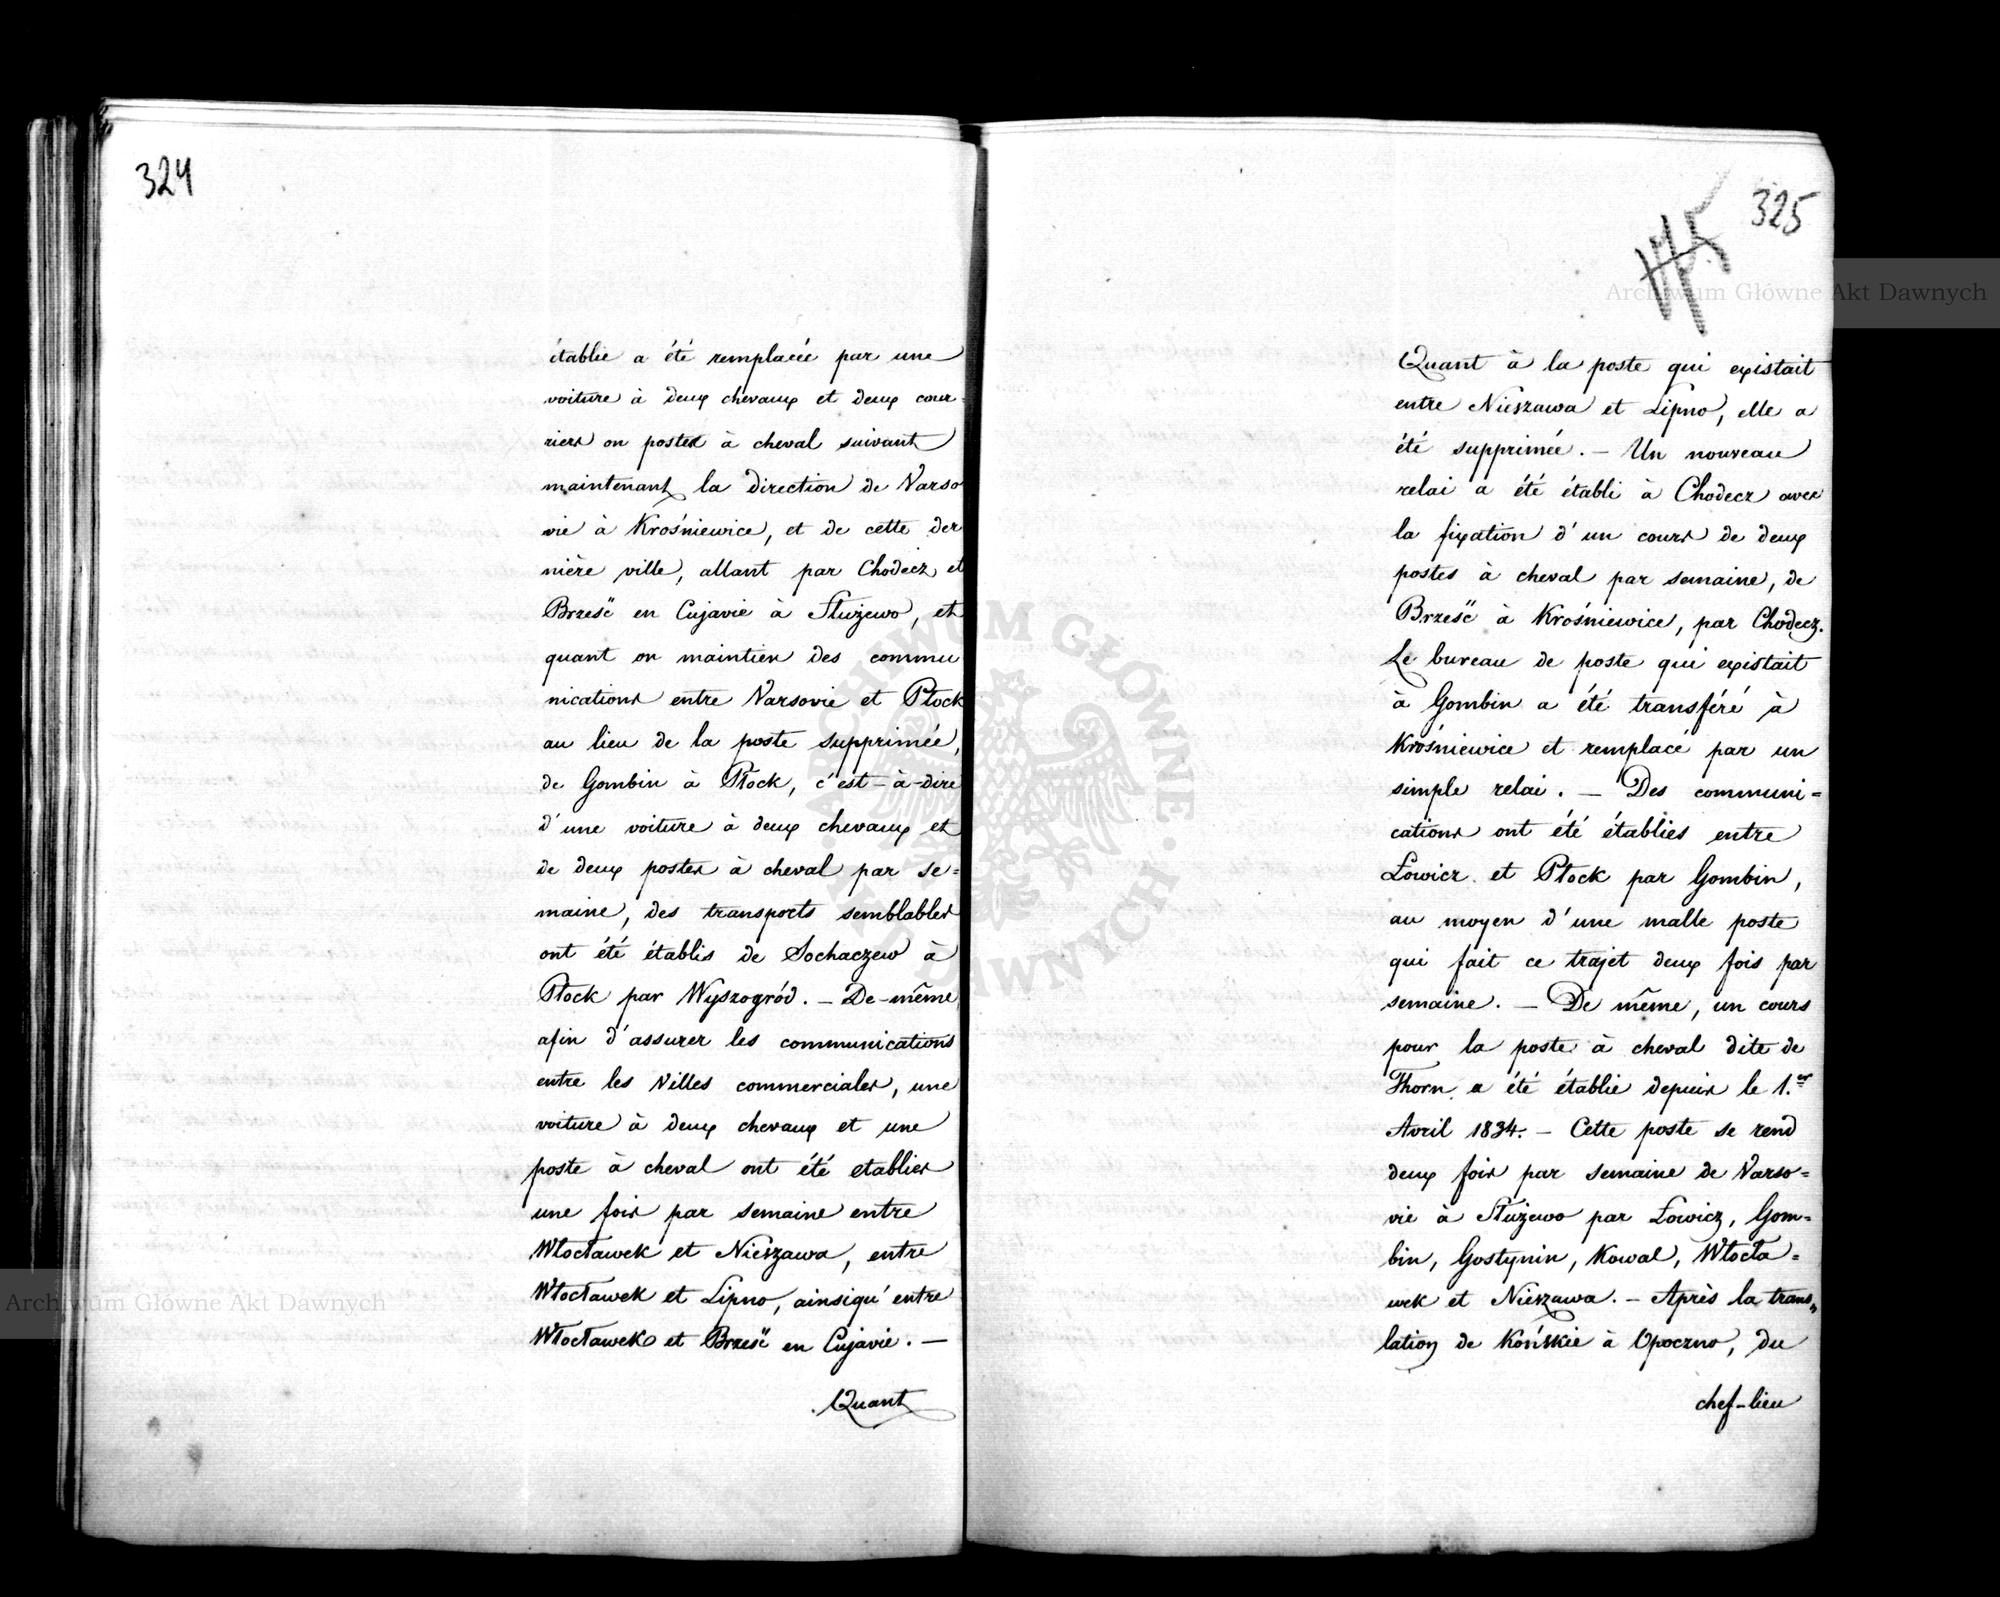 324
établie a été remplacée par une
voiture à deux chevaux et deux cour-
riers ou postes à cheval suivant
maintenant la direction de Varso
vie à Krośniewice, et de cette der
nière ville, allant par Chodecz et
Brześć en Cujavie à Służewo, et
quant on maintien des commu
nications entre Varsovie et Płock
au lieu de la poste supprimée,
de Gombin à Płock, c'est-à-dire
d'une voiture à deux chevaux et
de deux postes à cheval par se=
maine, des transports semblables
ont été établis de Sochaczew à
Płock par Wyszogród. — De-même
afin d'assurer les communications
entre les Villes commerciales, une
voiture à deux chevaux et une
poste à cheval ont été etablies
une fois par semaine entre
Włocławek et Nieszawa, entre
Włocławek et Lipno, ainsiqu'entre
Włocławek et Brześć en Cujavie. —
Quant
325
175
Quant à la poste qui existait
entre Nieszawa et Lipno, elle a
été supprimée. — Un nouveau
relai a été établi à Chodecz avec
la fixation d'un cours de deux
postes à cheval par semaine, de
Brześć à Krośniewice, par Chodecz.
Le bureau de poste qui existait
à Gombin a été transféré à
Krośniewice et remplacé par un
simple relai. — Des communi=
cations ont été établies entre
Łowicz et Płock par Gombin,
au moyen d'une malle poste
qui fait ce trajet deux fois par
semaine. — De même, un cours
pour la poste à cheval dite de
Thorn a été établie depuis le 1.er
Avril 1834. — Cette poste se rend
deux fois par semaine de Varso=
vie à Służewo par Łowicz, Gom=
bin, Gostynin, Kowal, Włocła=
wek et Nieszawa. — Après la trans„
lation de Końskie à Opoczno, du
chef-lieu
Archiwum Główne Akt Dawnych
Archiwum Główne Akt Dawnych
ARCHIWUM GŁÓWNE AKT DAWNYCH